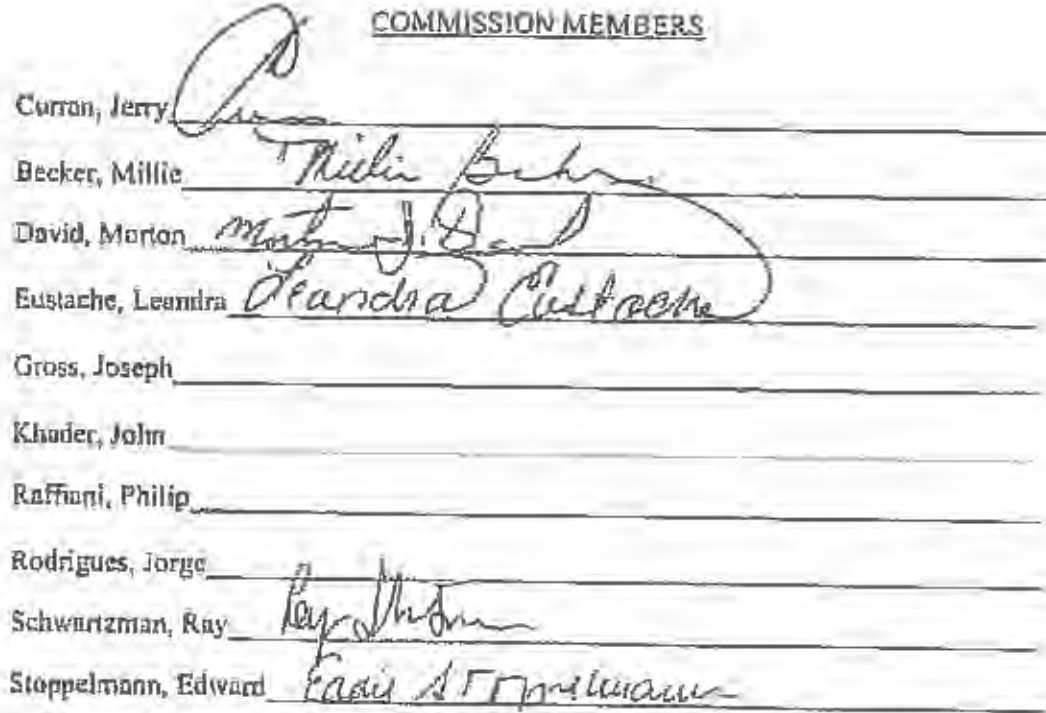 COMMISSION MEMBERS
Curran, Jerry
Becker, Millie Millie Becker
David, Morton Morton J. David
Eustache, Leandra Leandra Eustache
Gross, Joseph
Khader, John
Raffiani, Philip
Rodrigues, Jorge
Schwartzman, Ray Ray
Stoppelmann, Edward Eddie Stoppelmann